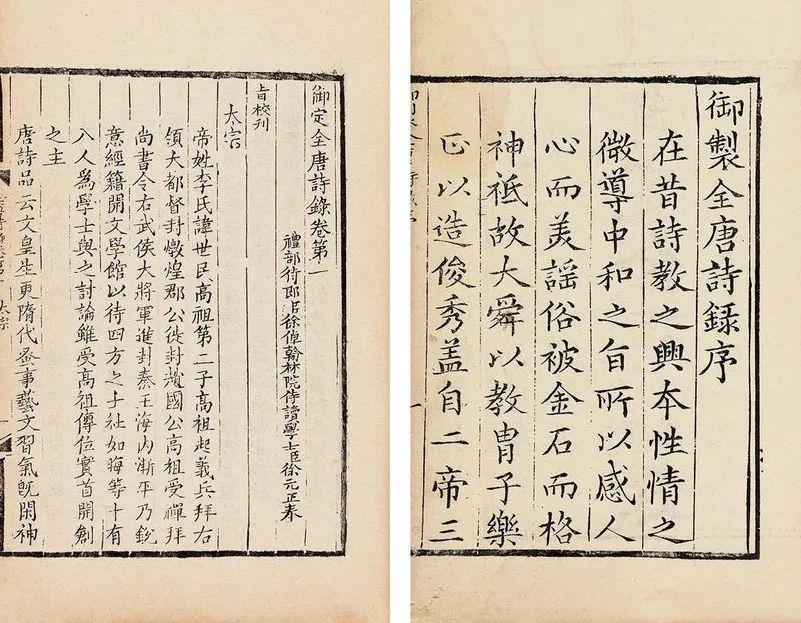 御製全唐詩錄序
在昔詩教之興本性情之
微導中和之旨所以感人
心而美謡俗被金石而格
神祇故大舜以教胄子樂
正以造俊秀盖自二帝三
御定全唐詩錄卷第一
禮部侍郎臣徐倬翰林院侍讀學士臣徐元正奉
旨校刋
太宗
帝姓李氏諱世民高祖第二子高祖起義兵拜右
領大都督封燉煌郡公徙封趙國公高祖受禪拜
尚書令右武侯大將軍進封秦王海内漸平乃銳
意經籍開文學館以待四方之士杜如晦等十有
八人為學士與之討論雖受高祖傳位實首開創
之主
唐詩品云文皇生更隋代叅事藝文習氣既閑神
太宗